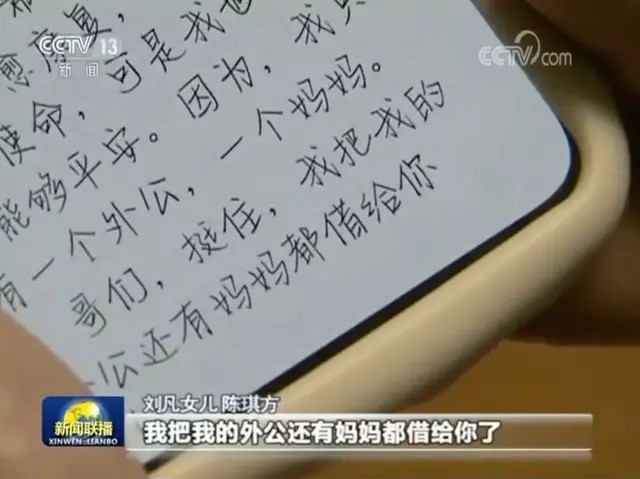 CCTV 13
新闻
CCTV.com
愈康复,
使命,可是我也
能够平安。因为,我只
有一个外公,一个妈妈。
哥们,挺住,我把我的
外公还有妈妈都借给你
刘凡女儿 陈琪方
我把我的外公还有妈妈都借给你了
新闻联播
XINWEN LIANBO